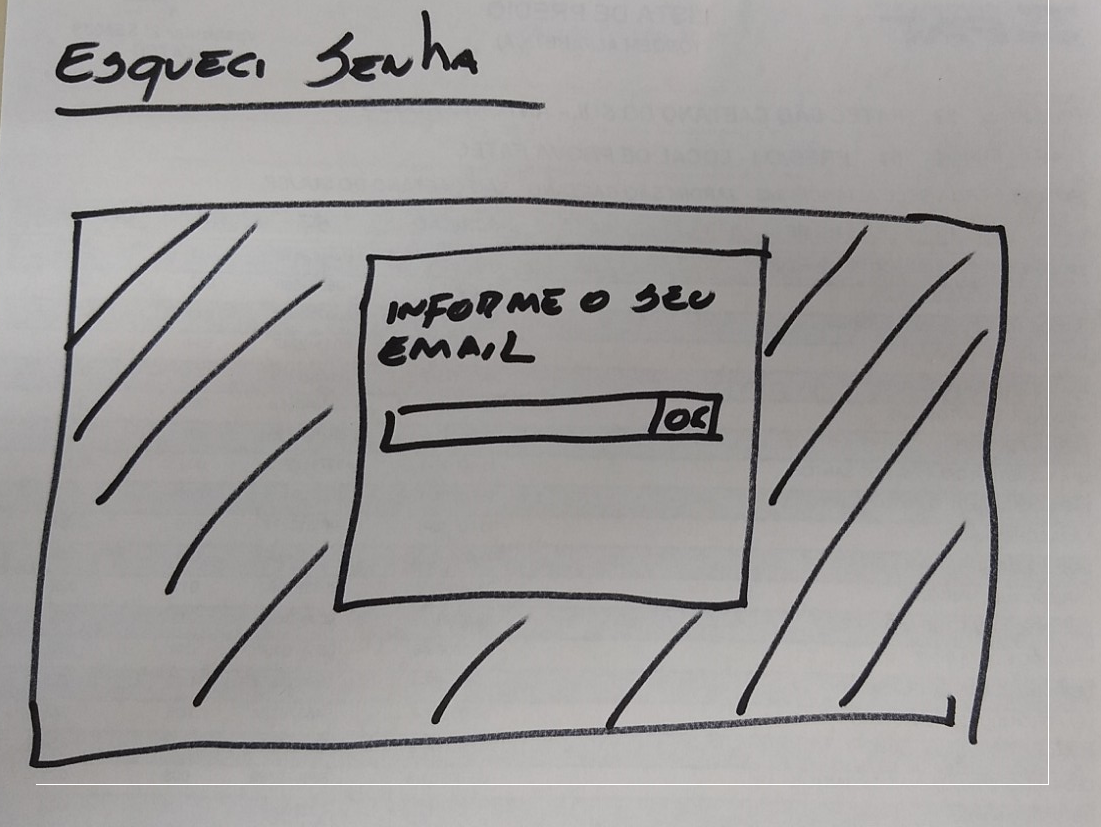 ESQUECI SENHA
INFORME O SEU
EMAIL
OK